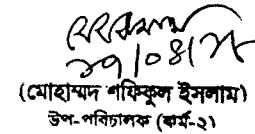 ১৭/০৪/
(মোহাম্মদ শফিকুল ইসলাম)
উপ-পরিচালক (কর্ম-২)